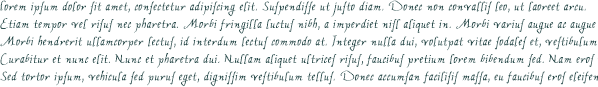 lorem ipsum dolor sit amet, consectetur adipiscing elit. Suspendisse ut justo diam. Donec non convallis leo, ut laoreet arcu.
Etiam tempor vel risus nec pharetra. Morbi fringilla luctus nibh, a imperdiet nisl aliquet in. Morbi varius augue ac augue
Morbi hendrerit ullamcorper lectus, id interdum lectus commodo at. Integer nulla dui, volutpat vitae sodales et, vestibulum
Curabitur et nunc elit. Nunc et pharetra dui. Nullam aliquet ultrices risus, faucibus pretium lorem bibendum sed. Nam eros
Sed tortor ipsum, vehicula sed purus eget, dignissim vestibulum tellus. Donec accumsan facilisis massa, eu faucibus eros eleifen